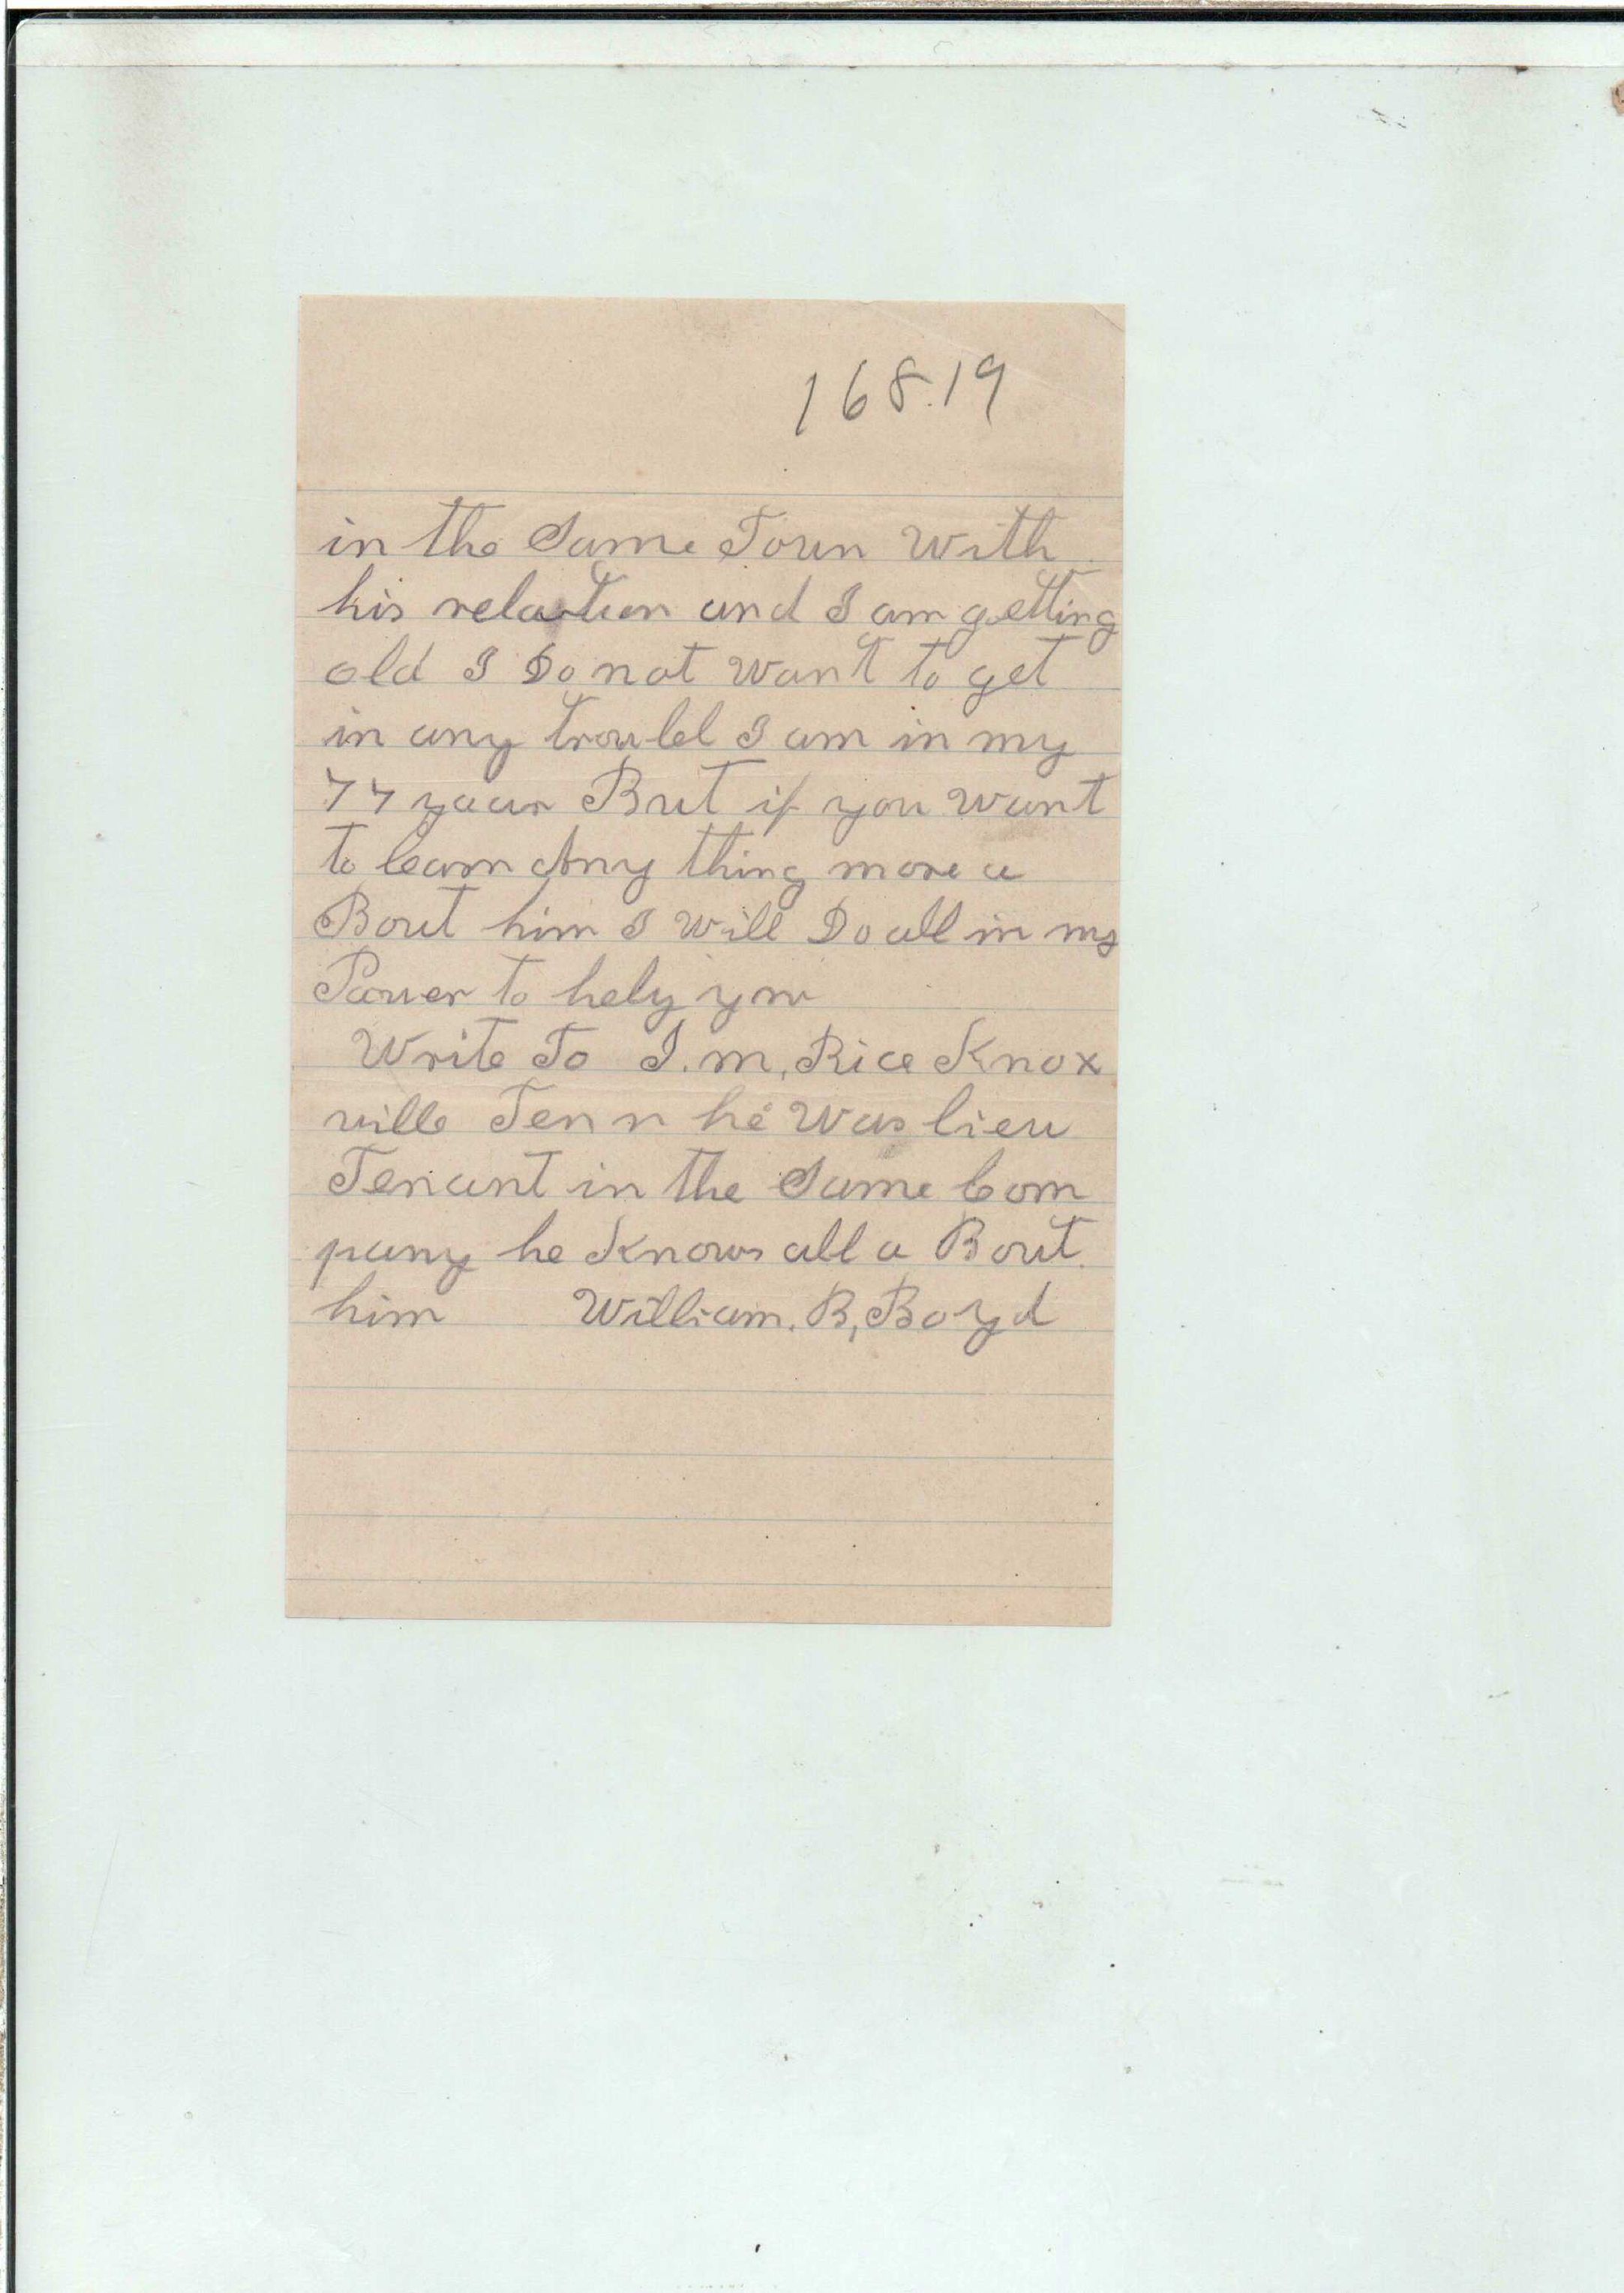 168.19
in the Same Town With
his relation and I am getting
old I Do not Want to get
in any troubel I am in my
77 year But if you Want
to learn Any thing more a
Bout him I Will Do all in my
Power to help you
Write To I. M, Rice Knox
ville Tenn he Was lieu
Tenant in the Same Com
pany he Knows all a Bout
him William. B, Boyd